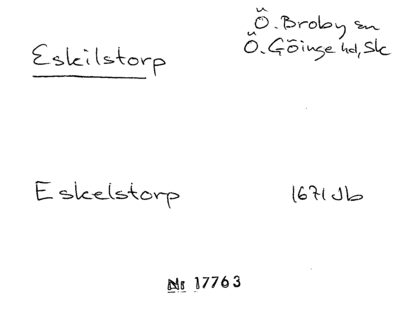 Ö. Broby sn
Eskilstorp
Ö. Göinge hd, Sk
Eskelstorp 1671 Jb
Nr 17763